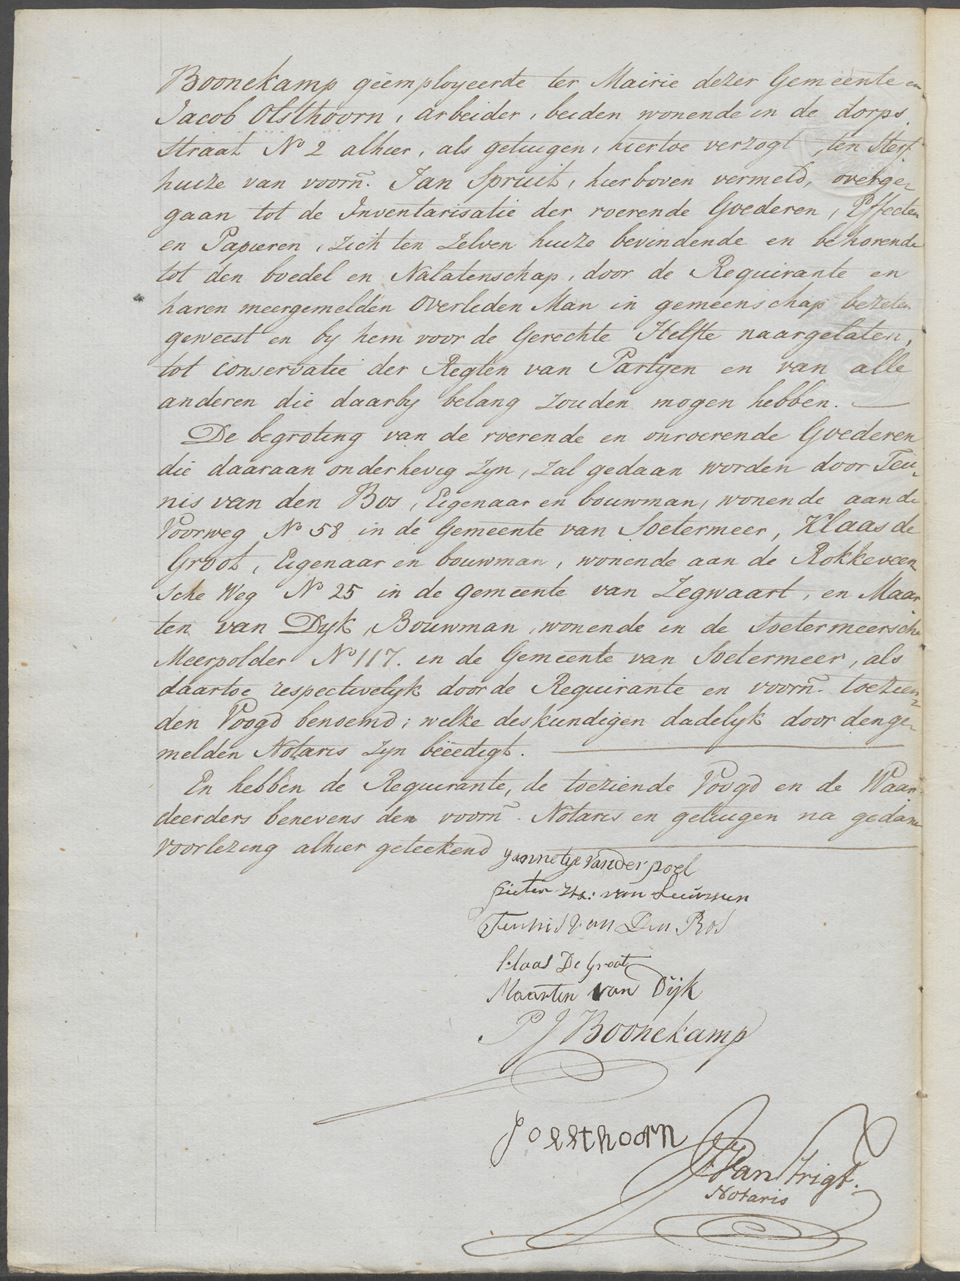 Boonekamp geëmployeerde ter Mairie dezer Gemeente en
Jacob Olsthoorn, arbeider, beiden wonende in de dorps,
Straat No 2 alhier, als getuigen, hiertoe verzogt, ten Sterf-
huize van voorn. Jan Spruit, hierboven vermeld, overge-
gaan tot de Inventarisatie der roerende Goederen, Effecten
en Papieren, zich ten zelven huize bevindende en behorende
tot den boedel en Nalatenschap, door de Requirante en
haren meergemelden Overleden Man in gemeenschap bezeten
geweest en by hem voor de Gerechte Helfte naargelaten,
tot conservatie der Regten van Partyen en van alle
anderen die daarby belang zouden mogen hebben.
De begroting van de roerende en onroerende Goederen
die daaraan onderhevig zyn, zal gedaan worden door Teu-
nis van den Bos, Eigenaar en bouwman, wonende aan de
Voorweg No 58 in de Gemeente van Soetermeer, Klaas de
Groot, Eigenaar en bouwman, wonende aan de Rokkeveen
sche Weg No 25 in de gemeente van Zegwaart, en Maar
ten van Dyk, Bouwman, wonende in de Soetermeersche
Meerpolder No 117. in de Gemeente van Soetermeer, als
daartoe respectivelyk door de Requirante en voorn. toezien-
den Voogd benoemd; welke deskundigen dadelyk door den ge-
melden Notaris zyn beëedigt.
En hebben de Requirante, de toeziende Voogd en de Waar
deerders benevens den voorn. Notaris en getuigen na gedane
voorlezing alhier geteekend
Jannetje van der poel
Pieter van Leeuwen
Teunis van Den Bos
Klaas De Groot
Maarten van Dijk
P J Boonekamp
J olsthoorn
Van Strigt.
Notaris